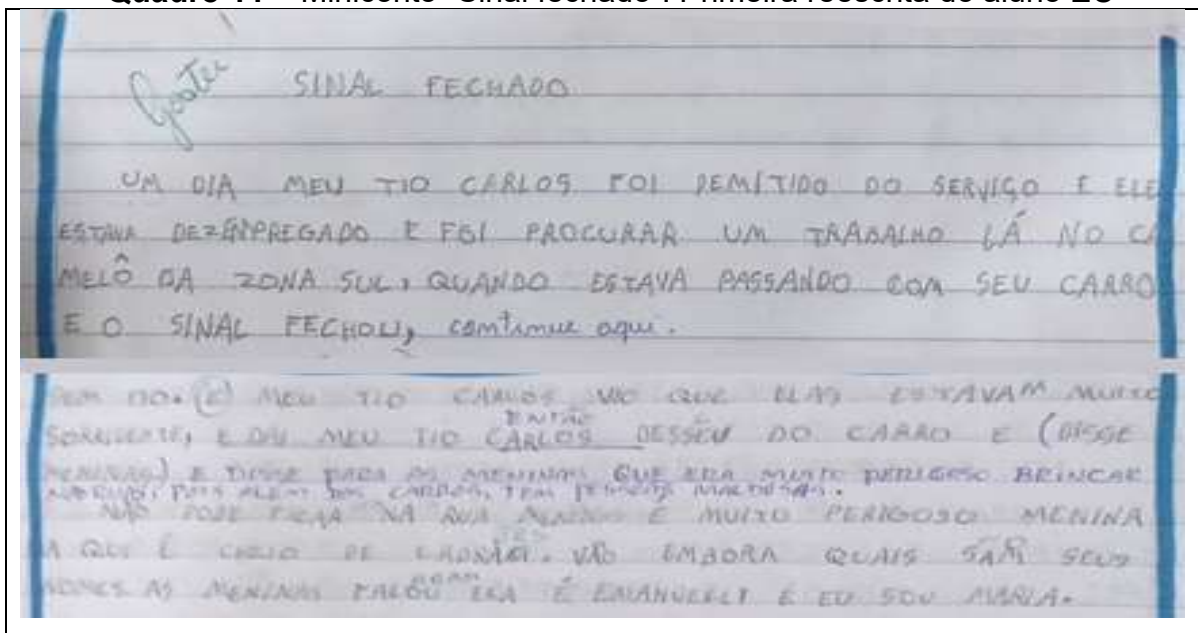 Gostei SINAL FECHADO
UM DIA MEU TIO CARLOS FOI DEMITIDO DO SERVIÇO E ELE
ESTAVA DEZEMPREGADO E FOI PROCURAR UM TRABALHO LÁ NO CA
MELÔ DA ZONA SUL, QUANDO ESTAVA PASSANDO COM SEU CARRO
E O SINAL FECHOU, continue aqui.
MEU TIO CARLOS VIO QUE ELAS ESTAVAM MUITO
ENTÃO
SORRIDENTE, E DAI MEU TIO CARLOS DESSEU DO CARRO E (DISSE
MENINAS) E DISSE PARA AS MENINAS QUE ERA MUITO PERIGOSO BRINCAR
NA RUA, POIS ALÉM DOS CARROS, TEM PESSOAS MALDOSAS.
NÃO PODE FICAR NA RUA MENINO É MUITO PERIGOSO MENINA
A QUI É CHEIO DE VÃO EMBORA QUAIS SAM SEUS
NOMES AS MENINAS FALOU ELA É EMANUELLY E EU SOU MARIA.